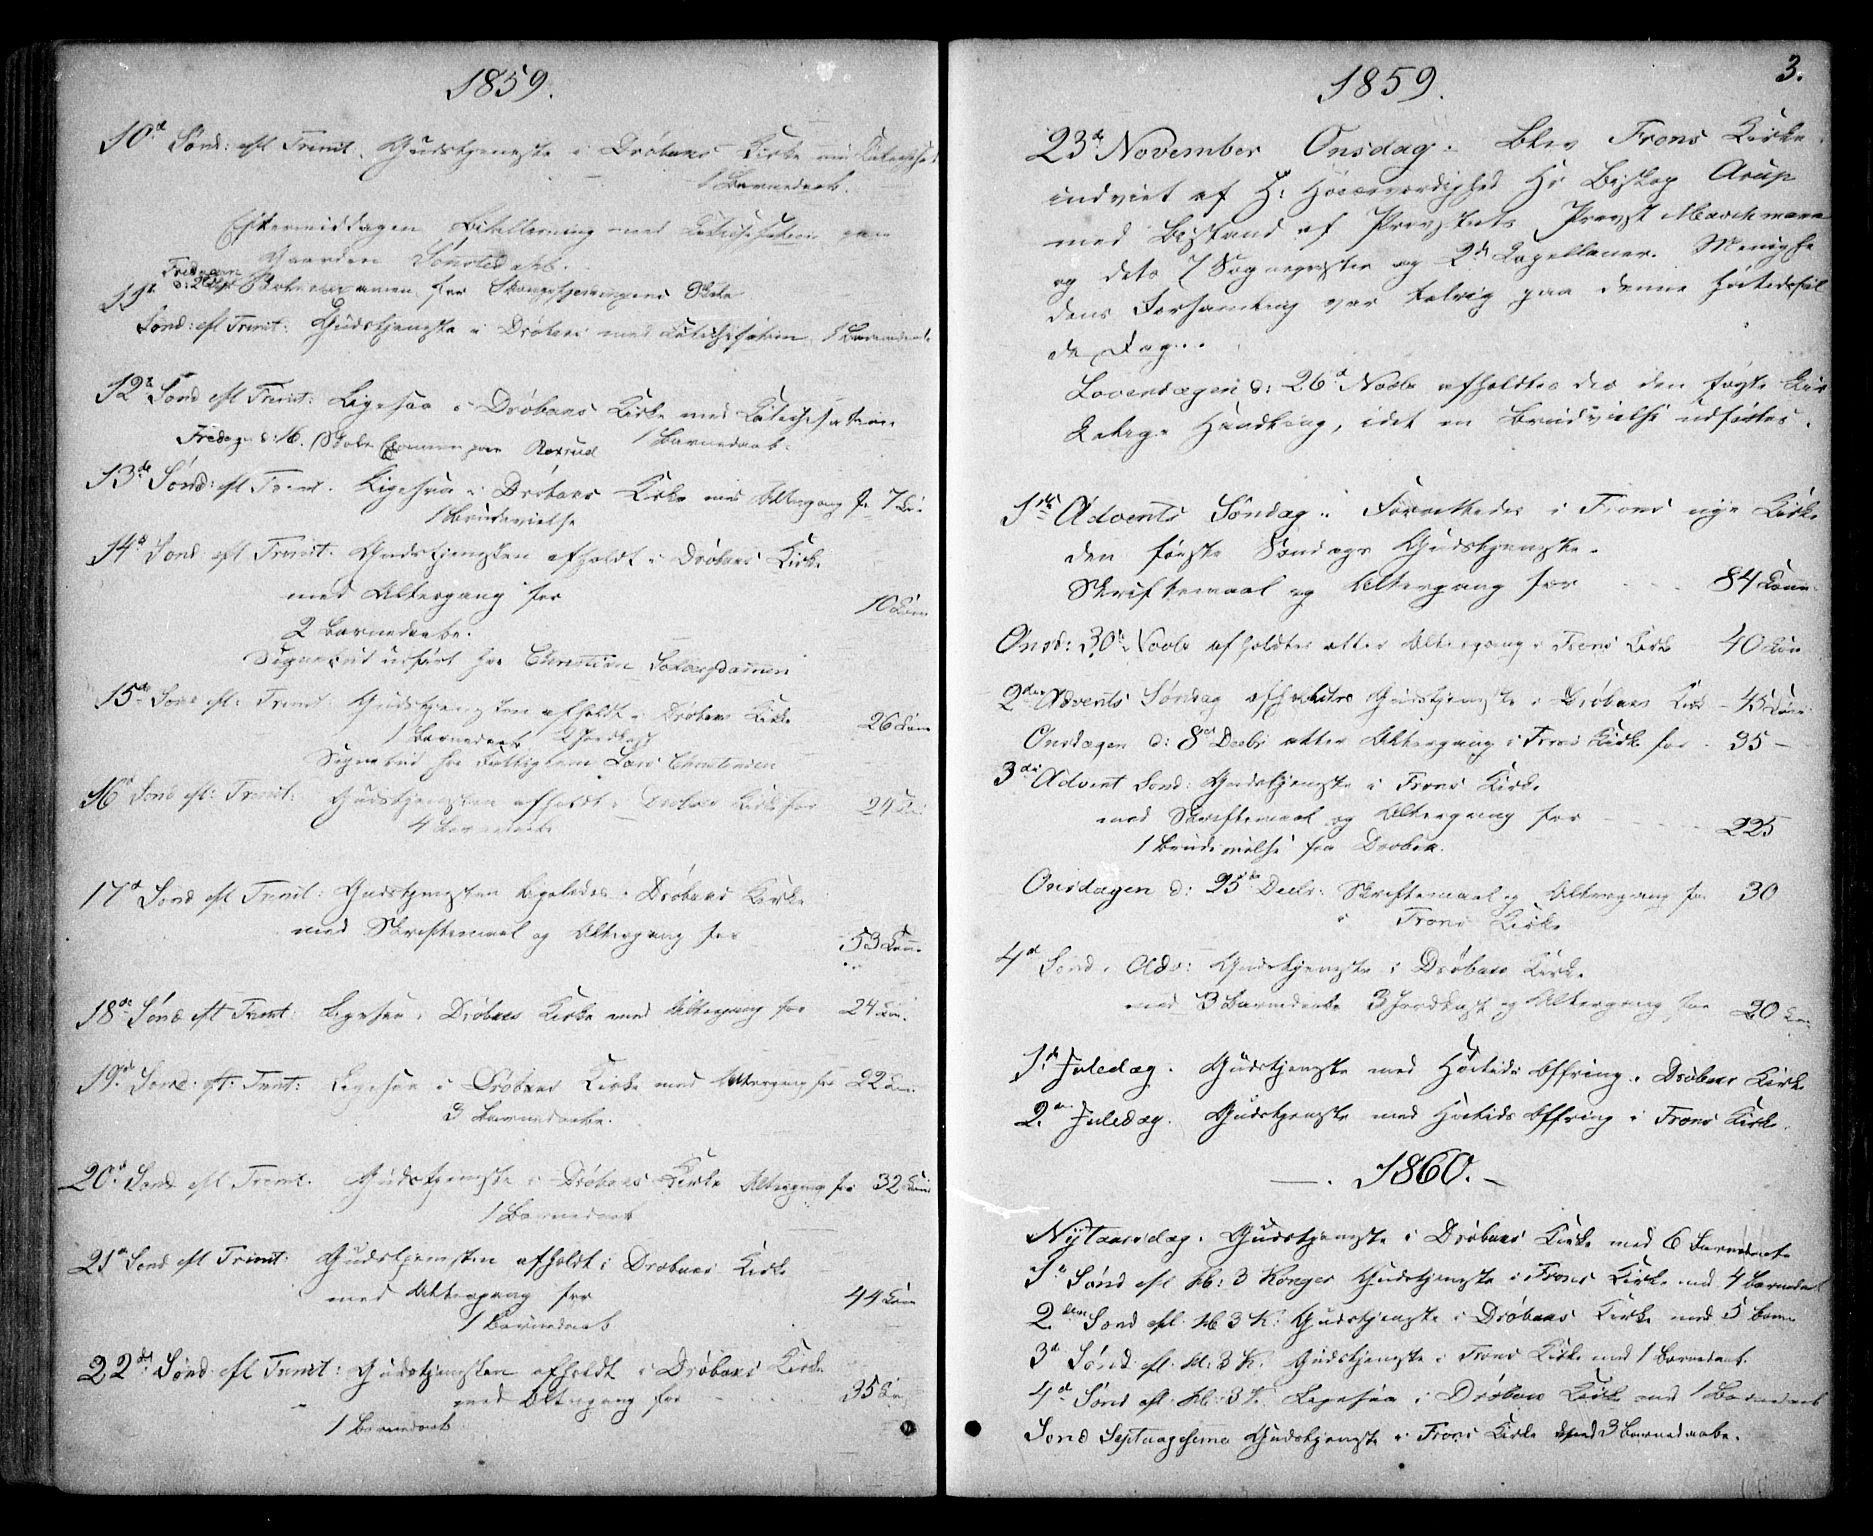 1859.
10d Sønd: eft Trinit. Gudstjeneste i Drøbaks Kirke
1 Barnedaab.
Eftermiddagen Bibellæsning med Catechisation paa
Gaarden
Skoleexamen for Skole
11t Sønd: eft Trinit: Gudstjeneste i Drøbak med Catechisation 1 Barnedaab
12t Sønd eft Trinit: Ligesaa i Drøbaks Kirke med Catechisation
1 Barnedaab.
Fredag d: 16. Skole Examen paa
13de Sønd: eft Trinit. Ligesaa i Drøbaks Kirke med Altergang for 7 Com.
1 Brudevielse
14d Sønd eft Trinit. Gudstjenesten afholdt i Drøbaks Kirke
med Altergang for 10 Com
2 Barnedaabe.
Sognebud udført hos Christian
15de Sønd eft. Trinit Gudstjenesten afholdt i Drøbaks Kirke 26 Com
1 Barnedaab Jordkast
Sognebud hos Fattiglem Lars Christensen
16d Sønd eft: Trinit: Gudstjenesten afholdt i Drøbaks Kirke for 24 Co:
4 Barnedaabe
17d Sønd eft Trinit: Gudstjenesten ligeledes i Drøbaks Kirke
med Skriftemaal og Altergang for 53 Com.
18de Sønd eft Trinit: Ligesaa i Drøbaks Kirke med Altergang for 24 Com.
19de Sønd: eft: Trinit: Ligesaa i Drøbaks Kirke med Altergang for 22 Com.
3 Barnedaabe.
20d Sønd eft Trinit. Gudstjeneste i Drøbaks Kirke Altergang for 32 Com
1 Barnedaab
21d Sønd eft Trinit: Gudstjenesten afholdt i Drøbaks Kirke
med Altergang for 44 Com
1 Barnedaab
22de Sønd: eft Trinit: Gudstjenesten afholdt i Drøbaks Kirke
med Altergang for 35 Co
1 Barnedaab
3.
1859.
23de November Onsdag. Blev Frons Kirke
indviet af H: Høiærværdighed Hr Biskop Arup
med Bistand af Provstiets Provst
og dets 7 Sognepræster og 2de Capellaner. Menighe
dens Forsamling var talrig paa denne høitidsful
de Dag.
Løverdagen d: 26d Novbr afholdtes der den første Kir
kelige Handling, idet en Brudvielse udførtes.
1ste Advents Søndag. Forrettedes i Frons nye Kirke
den første Søndags Gudstjeneste.
Skriftemaal og Altergang for 84 Comm.
Onsd: 30d Novbr afholdtes atter Altergang i Frons Kirke 40 Com
2den Advents Søndag afholdtes Gudstjeneste i Drøbaks Kirke 45 Com:
Onsdagen d: 8de Decbr atter Altergang i Frons Kirke for 35 —
3die Advent Sønd: Gudstjeneste i Frons Kirke
med Skriftemaal og Altergang for 225
1 Brudevielse fra Drøbak.
Onsdagen d: Decbr: Skriftemaal og Altergang for 30
i Frons Kirke
4d Sønd i Adv: Gudstjeneste i Drøbaks Kirke
med 3 Barnedaabe 3 Jordkast og Altergang for 20 Com:
1d Juledag. Gudstjeneste med Høitids Offring i Drøbaks Kirke
2n Juledag. Gudstjeneste med Høitids Offring i Frons Kirke.
—. 1860. —
Nytaarsdag. Gudstjeneste i Drøbaks Kirke med 6 Barnedaabe
1t Sønd eft H: 3 Konger Gudstjeneste i Frons Kirke med 4 Barnedaab
2den Sønd eft. H 3 K. Gudstjeneste i Drøbaks Kirke med 5 Barne
3d Sønd: eft. H: 3 K. Gudstjeneste i Frons Kirke med 1 Barnedaab.
4d Sønd eft. H: 3 K. Ligesaa i Drøbaks Kirke med 1 Barnedaab
Sønd Septuagesima Gudstjeneste i Frons Kirke med 3 Barnedaabe.